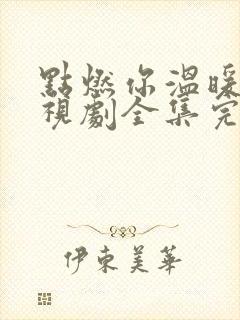 點燃你溫暖
視劇全集完
伊東美華